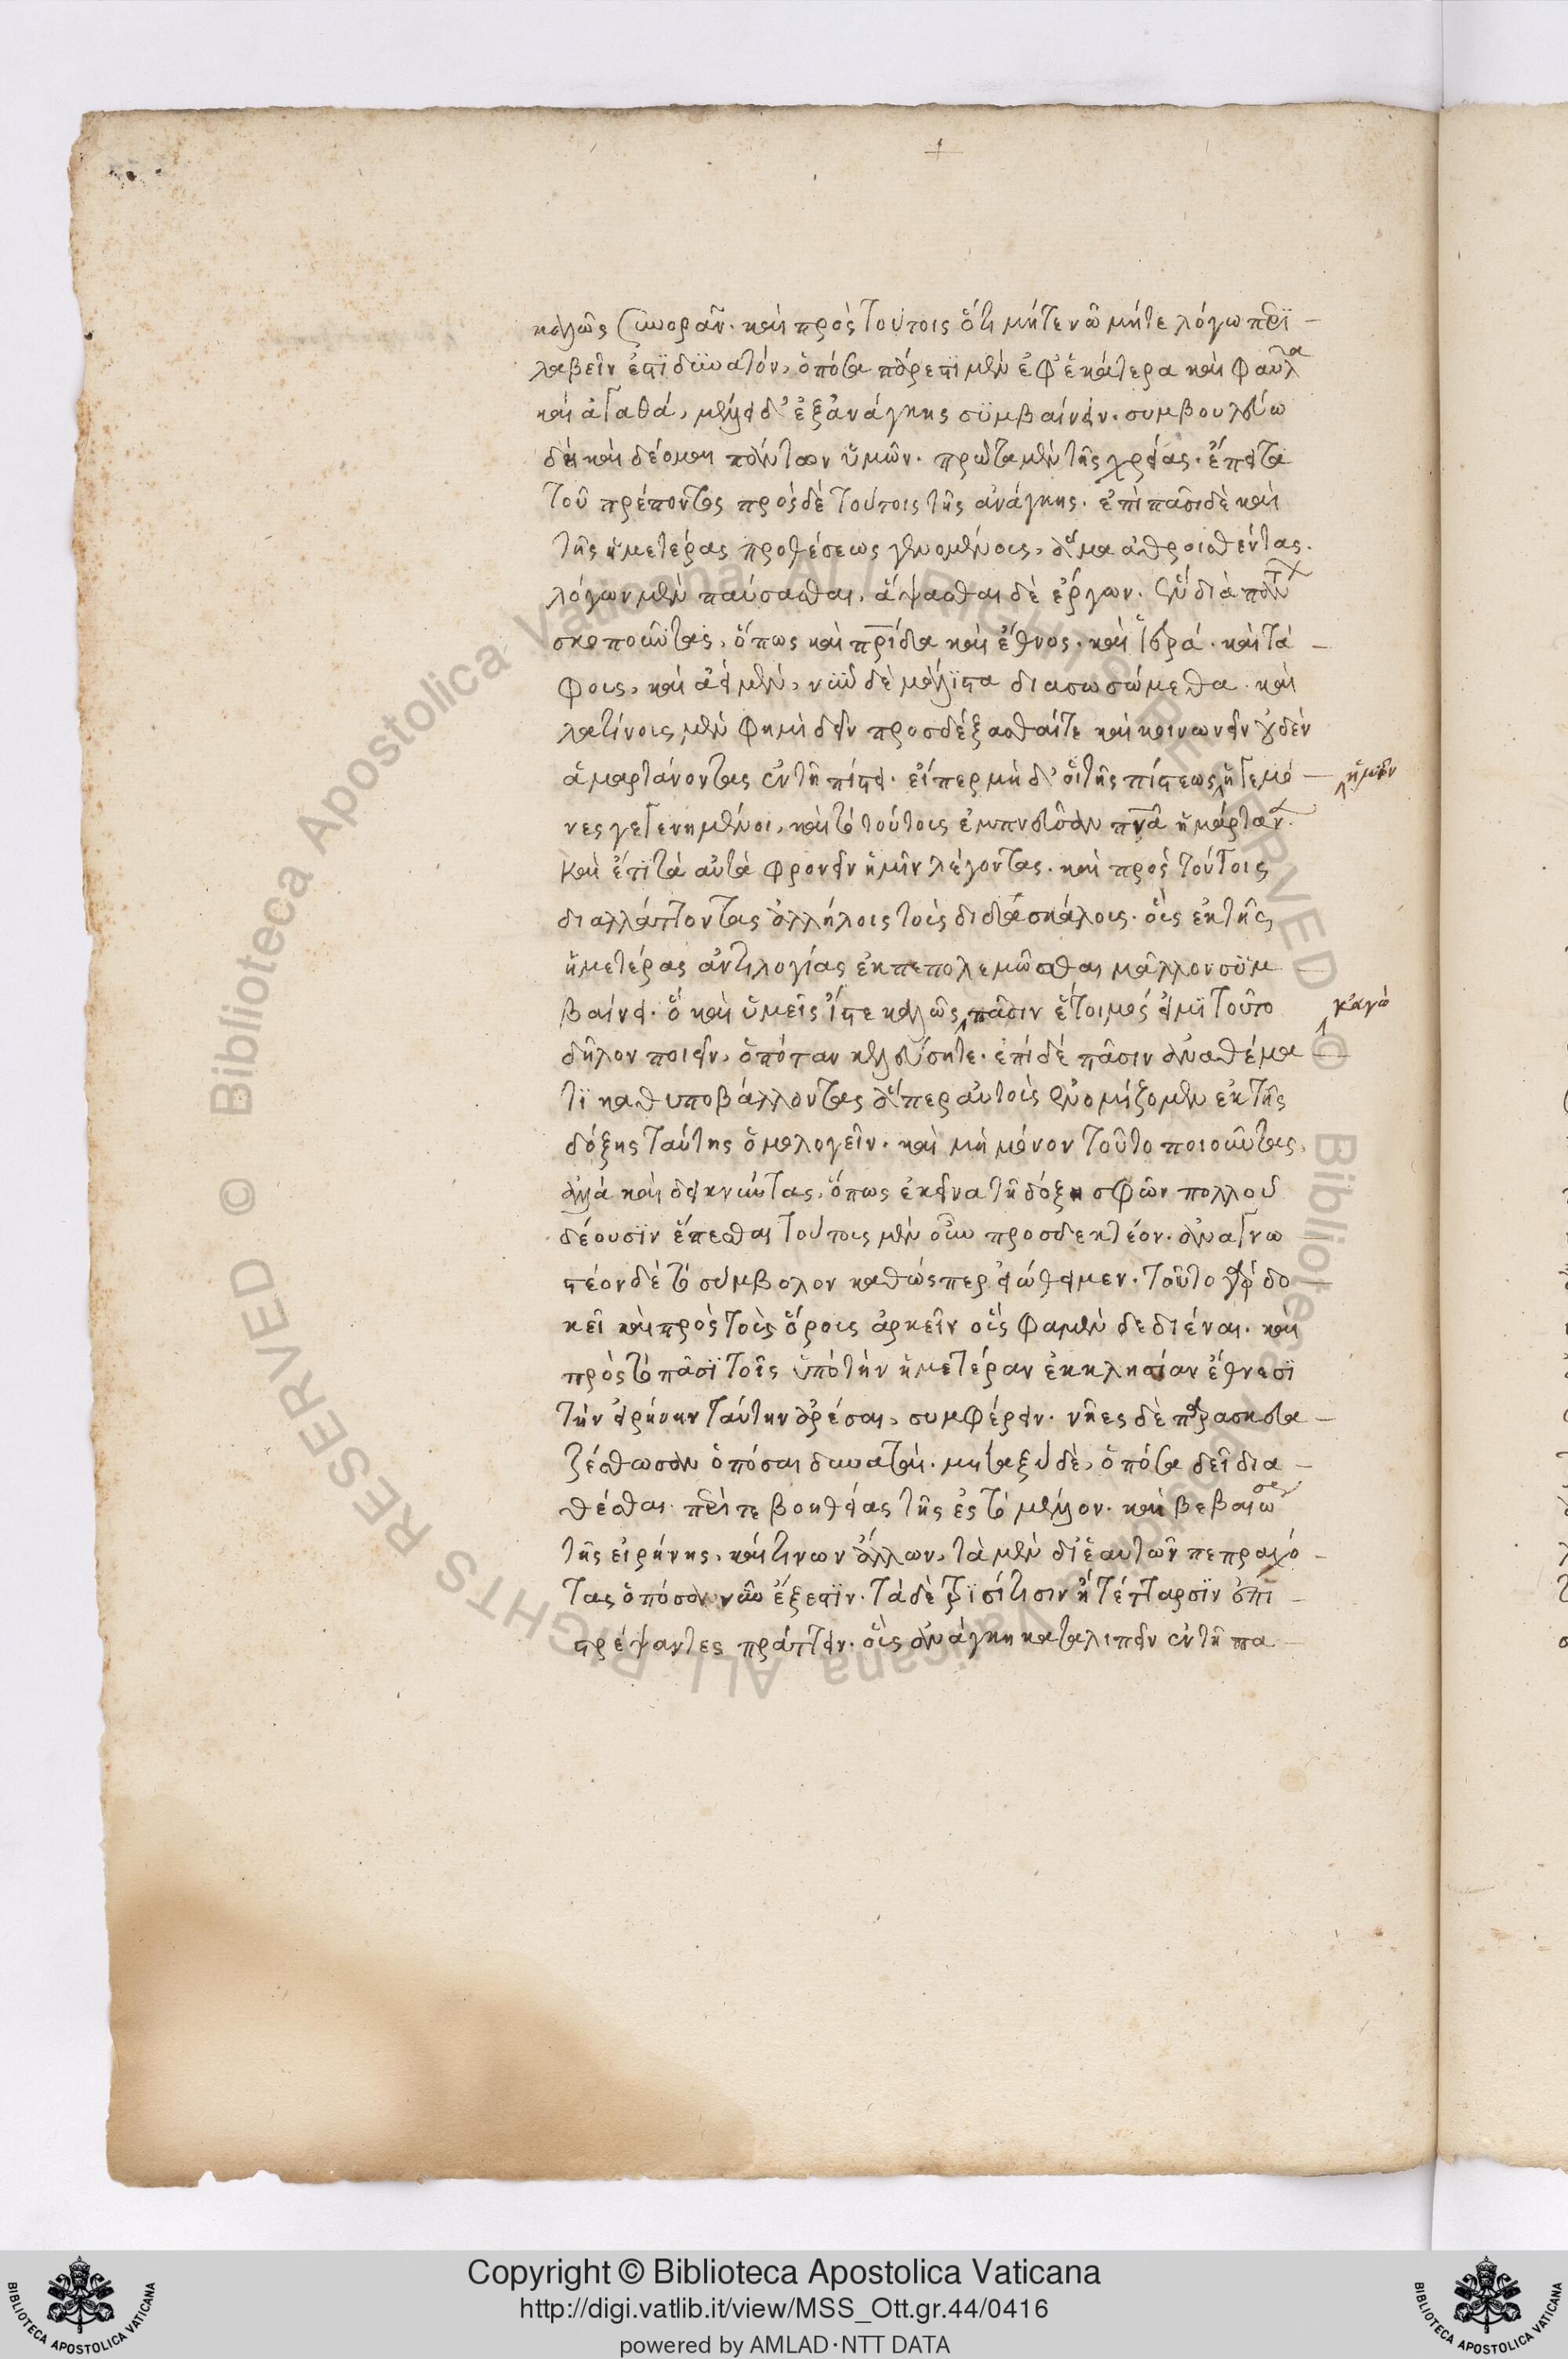 καλῶς συνορᾶν. καὶ πρὸς τούτοις ὅτι μήτε νῶ μήτε λόγω περι
λαβεῖν ἐστὶ δυνατόν, ὁπόσα πάρεστι μὲν ἐφ' ἑκάτερα καὶ φαῦλα
καὶ ἀγαθά, μέλλει δ' ἐξανάγκης συμβαίνειν. συμβουλεύω
δὴ καὶ δέομαι πάντων ὑμῶν. πρῶτα μὲν τῆς χρείας. ἔπειτα
τοῦ πρέποντος πρὸς δὲ τούτοις τῆς ἀνάγκης. ἐπὶ πᾶσι δὲ καὶ
τῆς ἡμετέρας προθέσεως γενομένοις, ἅμα ἀθροισθέντας.
λόγων μὲν παύσασθαι, ἅψασθαι δὲ ἔργων. διὰ
σκοποῦντας, ὅπως καὶ πρίδα καὶ ἔθνος. καὶ ἱερά. καὶ τά
φους, καὶ ἀεὶ μὲν, νῦν δὲ μάλιστα διασωσώμεθα. καὶ
λατίνοις μὲν φημὶ δεῖν προσδέξασθαί τε καὶ κοινωνεῖν οὐδὲν
ἁμαρτάνοντας ἐν τῆ πίστει. εἴπερ μὴ δ' οἱ τῆς πίστεως ἡγεμό
ἡμῶν
νες γεγενημένοι, καὶ τὸ τούτοις ἐμπνεῦσαν πνᾶ ἥμαρταν.
καὶ ἔτι τὰ αὐτὰ φρονεῖν ἡμῖν λέγοντας. καὶ πρὸς τούτοις
διαλλάττοντας ἀλλήλοις τοὺς διδασκάλους. οἷς ἐκ τῆς
ἡμετέρας ἀντιλογίας ἐκπεπολεμῶσθαι μᾶλλον συμ
βαίνει. ὃ καὶ ὑμεῖς ἴστε καλῶς πᾶσιν ἕτοιμός εἰμι τοῦτο
κἀγὼ
δῆλον ποιεῖν, ὁπόταν κελεύσητε. ἐπὶ δὲ πᾶσιν ἀναθέμα
τι καθυποβάλλοντας ἅπερ αὐτοὺς ἐνομίζομεν ἐκ τῆς
δόξης ταύτης ὁμολογεῖν. καὶ μὴ μόνον τοῦτο ποιοῦντας,
ἀλλὰ καὶ δεικνύντας, ὅπως ἐκεῖνα τῆ δόξη σφῶν πολλοῦ
δέουσιν ἕπεσθαι τούτοις μὲν οὖν προσδεκτέον. ἀναγνω
στέον δὲ τὸ σύμβολον καθώσπερ εἰώθειμεν. τοῦτο γὰρ δο
κεῖ καὶ πρὸς τοὺς ὅρους ἀρκεῖν οὓς φαμὲν δεδιέναι. καὶ
πρὸς τὸ πᾶσι τοῖς ὑπὸ τὴν ἡμετέραν ἐκκλησίαν ἔθνεσι
τὴν εἰρήνην ταύτην ἀρέσαι, συμφέρειν. νῆες δὲ παρασκευα
ζέσθωσαν ὁπόσαι δυναταί. μεταξὺ δὲ, ὁπόσα δεῖ δια
θέσθαι περί τε βοηθείας τῆς ἐς τὸ μέλλον. καὶ βεβαιώσεως
τῆς εἰρήνης. καί τινων ἄλλων, τὰ μὲν δι' ἑαυτῶν πεπραχό
τας ὁπόσα νῦν ἔξεστιν. τὰ δὲ τρισί τισιν ἢ τέτταρσιν ἐπι
τρέψαντες πράττειν. οὓς ἀνάγκη καταλιπεῖν ἐν τῆ πα
Copyright © Biblioteca Apostolica Vaticana
http://digi.vatlib.it/view/MSS_Ott.gr.44/0416
powered by AMLAD·NTT DATA